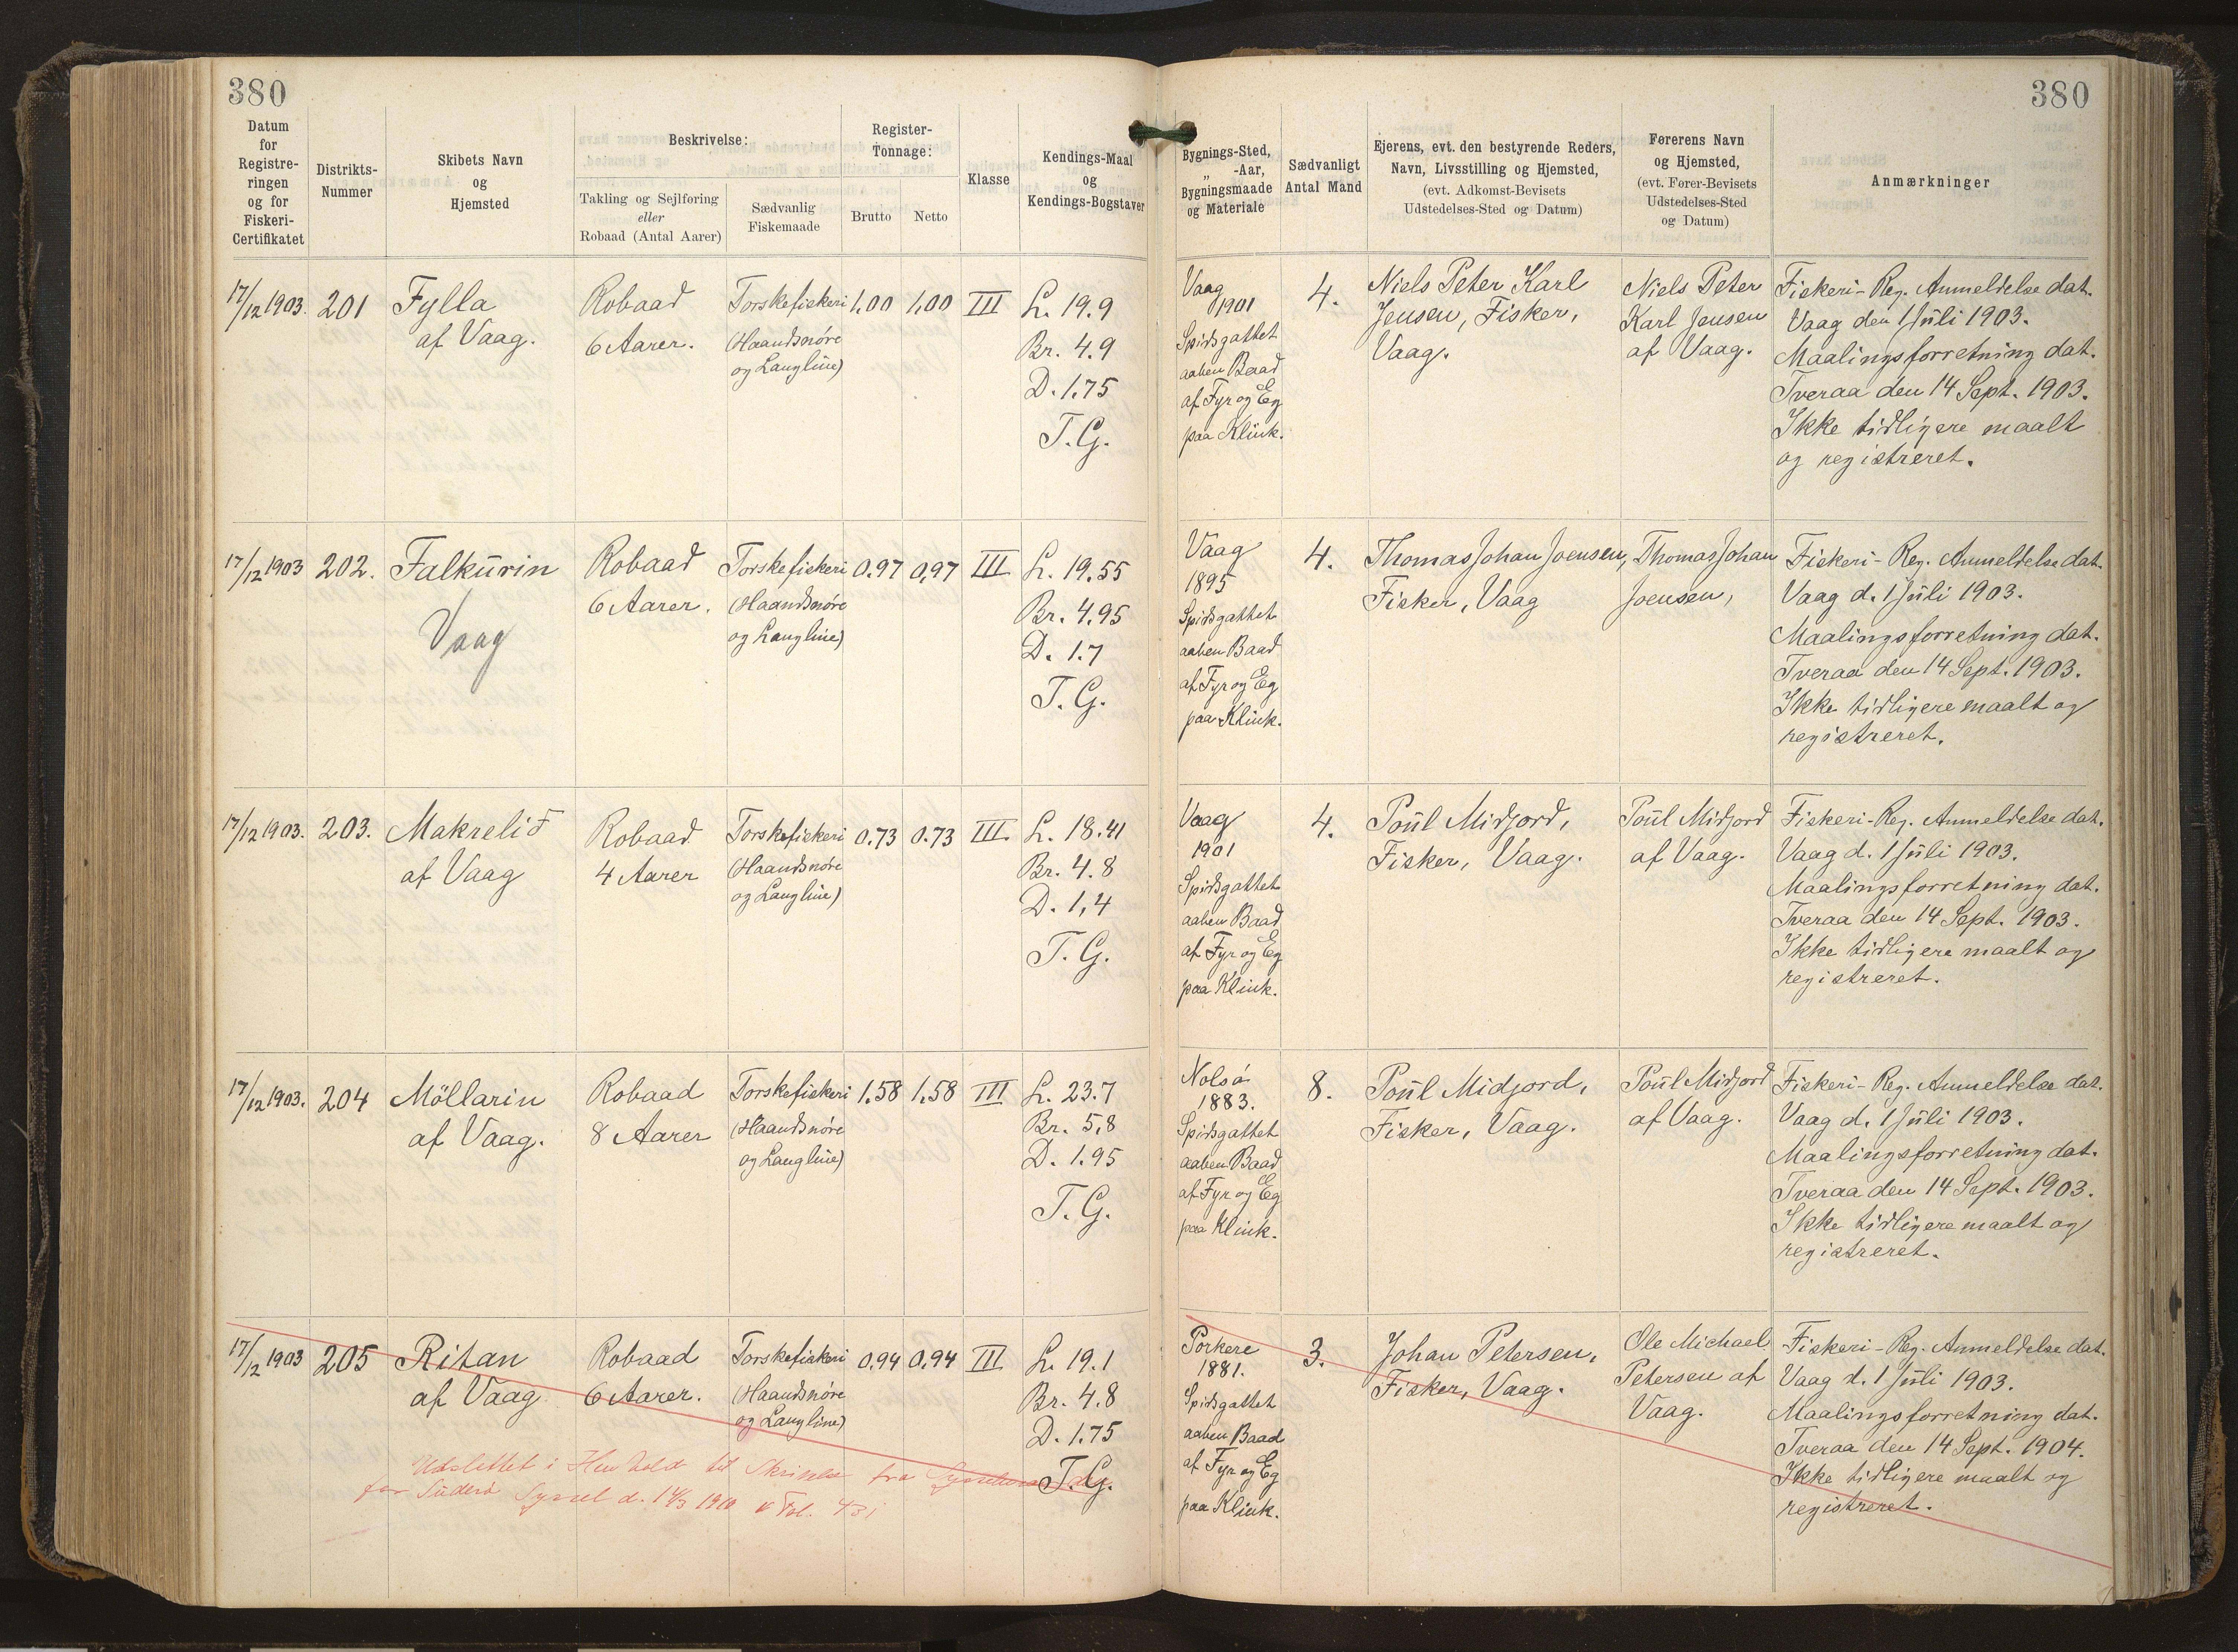 380
380
Datum
for
Registre-
ringen
og for
Fiskeri-
Certifikatet
Distrikts-
Nummer
Skibets Navn
og
Hjemsted
Beskrivelse:
Takling og Sejlføring
eller
Robaad (Antal Aarer)
Sædvanlig
Fiskemaade
Register-
Tonnage:
Brutto
Netto
Klasse
Kendings-Maal
og
Kendings-Bogstaver
Bygnings-Sted,
„ -Aar,
Bygningsmaade
og Materiale
Sædvanligt
Antal Mand
Ejerens, evt. den bestyrende Reders,
Navn, Livsstilling og Hjemsted,
(evt. Adkomst-Bevisets
Udstedelses-Sted og Datum)
Førerens Navn
og Hjemsted,
(evt. Fører-Bevisets
Udstedelses-Sted
og Datum)
Anmærkninger
17/12 1903.
201
Fylla
af Vaag.
Robaad
6 Aarer.
Torskefiskeri
(Haandsnøre
og Langline)
1,00
1,00
III
L. 19.9
Br. 4.9
D. 1.75
T.G.
Vaag
1901
Spidsgattet
aaben Baad
af Fyr og Eg
paa Klink.
4.
Niels Peter Karl
Jensen, Fisker,
Vaag.
Niels Peter
Karl Jensen
af Vaag.
Fiskeri-Reg. Anmeldelse dat.
Vaag den 1 Júli 1903.
Maalingsforretning dat.
Tveraa den 14 Sept. 1903.
Ikke tidligere maalt
og registreret.
17/12 1903
202.
Falkúrin
Vaag
Robaad
6 Aarer.
Torskefiskeri
(Haandsnøre
og Langline)
0.97
0,97
III
L. 19.55
Br. 4.95
D. 1.7
T.G.
Vaag
1895
Spidsgattet
aaben Baad
af Fyr og Eg
paa Klink.
4.
Thomas Johan Joensen,
Fisker, Vaag
Thomas Johan
Joensen,
Fiskeri-Reg. Anmeldelse dat.
Vaag d. 1 Júli 1903.
Maalingsforretning dat.
Tveraa den 14 Sept. 1903.
Ikke tidligere maalt og
registreret.
17/12 1903.
203.
Makrelið
af Vaag
Robaad
4 Aarer
Torskefiskeri
(Haandsnøre
og Langline)
0.73
0.73
III.
L. 18.41
Br. 4.8
D. 1,4
T.G.
Vaag
1901
Spidsgattet
aaben Baad
af Fyr og Eg
paa Klink.
4.
Poúl Midjord,
Fisker, Vaag.
Poúl Midjord
af Vaag.
Fiskeri-Reg. Anmeldelse dat.
Vaag d. 1 Júli 1903.
Maalingsforretning dat.
Tveraa den 14 Sept. 1903.
Ikke tidligere maalt og
registreret.
17/12 1903.
204
Möllarin
af Vaag.
Robaad
8 Aarer
Torskefiskeri
(Haandsnøre
og Langline)
1.58
1,58
III
L. 23.7
Br. 5,8
D. 1.95
T.G.
Nolsø
1883.
Spidsgattet
aaben Baad
af Fyr og Eg
paa Klink.
8.
Poúl Midjord,
Fisker, Vaag.
Poúl Midjord
af Vaag.
Fiskeri-Reg. Anmeldelse dat.
Vaag d. 1 Júli 1903.
Maalingsforretning dat.
Tveraa den 14 Sept. 1903.
Ikke tidligere maalt og
registreret.
17/12 1903
205
Ritan
af Vaag
Robaad
6 Aarer.
Torskefiskeri
(Haandsnøre
og Langline)
0.94
0,94
III
L. 19.1
Br. 4.8
D. 1.75
T.G.
Udslettet i Henhold til Skrivelse fra
for Súderø Syssel d. 1910 Fol.
Porkere
1881.
Spidsgattet
aaben Baad
af Fyr og Eg
paa Klink.
3.
Johan Petersen,
Fisker, Vaag.
Ole Michael
Petersen af
Vaag.
Fiskeri-Reg. Anmeldelse dat.
Vaag d. 1 Júli 1903.
Maalingsforretning dat.
Tveraa den 14 Sept. 1904.
Ikke tidligere maalt og
registreret.